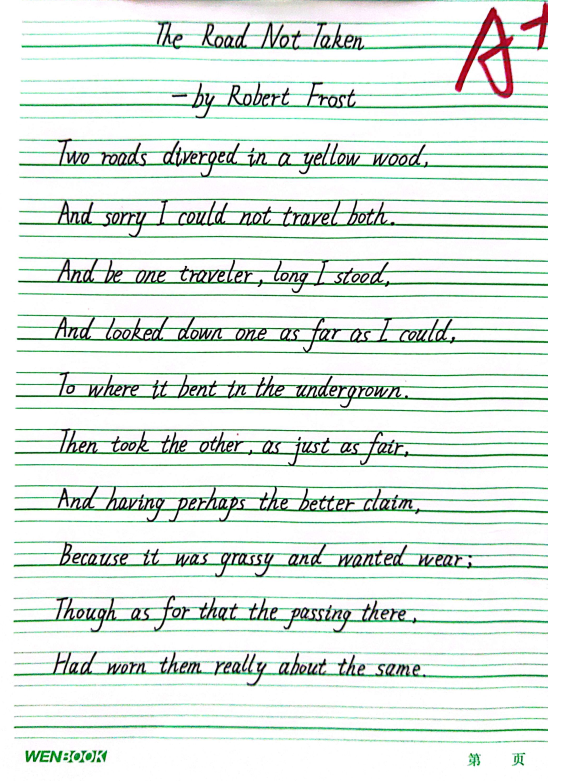 The Road Not Taken
A+
—by Robert Frost
Two roads diverged in a yellow wood,
And sorry I could not travel both.
And be one traveler, long I stood,
And looked down one as far as I could,
To where it bent in the undergrown.
Then took the other, as just as fair,
And having perhaps the better claim,
Because it was grassy and wanted wear;
Though as for that the passing there,
Had worn them really about the same.
WENBOOK
第 页